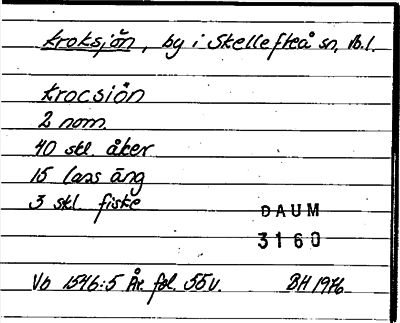 Kroksjön, by i Skellefteå sn, Vb.l.
Krocsiön
2 nom.
40 skl. åker
15 lass äng
3 skl. fiske
DAUM
3160
Vb 1546:5 År. fol. 55v. BH 1976